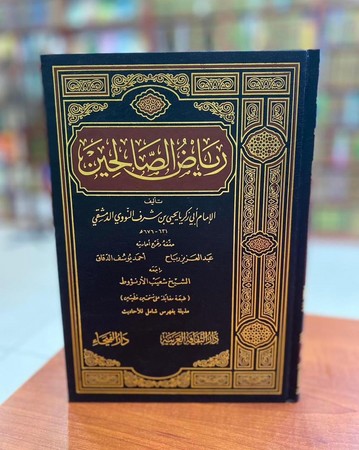 رياض الصالحين
تأليف
الإمام أبي زكريا يحيى بن شرف النووي الدمشقي
٦٣١ - ٦٧٦ هـ
حققه وخرج أحاديثه
عبد العزيز رباح أحمد يوسف الدقاق
راجعه
الشيخ شعيب الأرنؤوط
مذيلة بفهرس شامل للأحاديث
دار الثقافة العربية دار الفيحاء